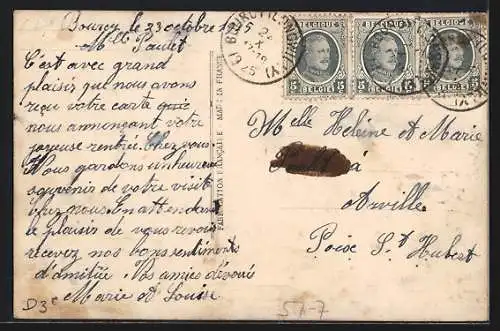 Bourcy le 23 octobre 1925
Mlle Paulet
C'est avec grand
plaisir que nous avons
reçu votre carte qui
nous annonçant votre
joyeuse rentrée. Chez nous
Nous gardons un heureux
souvenir de votre visit
chez nous. En attendant
le plaisir de vous revoir
recevez nos bons sentiments
d'amitiée. Vos amies dévoués
Marie et Louise
D3e
FABRICATION FRANÇAISE MADE IN FRANCE
25
BELGIE
BELGIE
BELGIE
5 5
5 5
5
Melle Heleine et Marie
Arville
Poise St Hubert